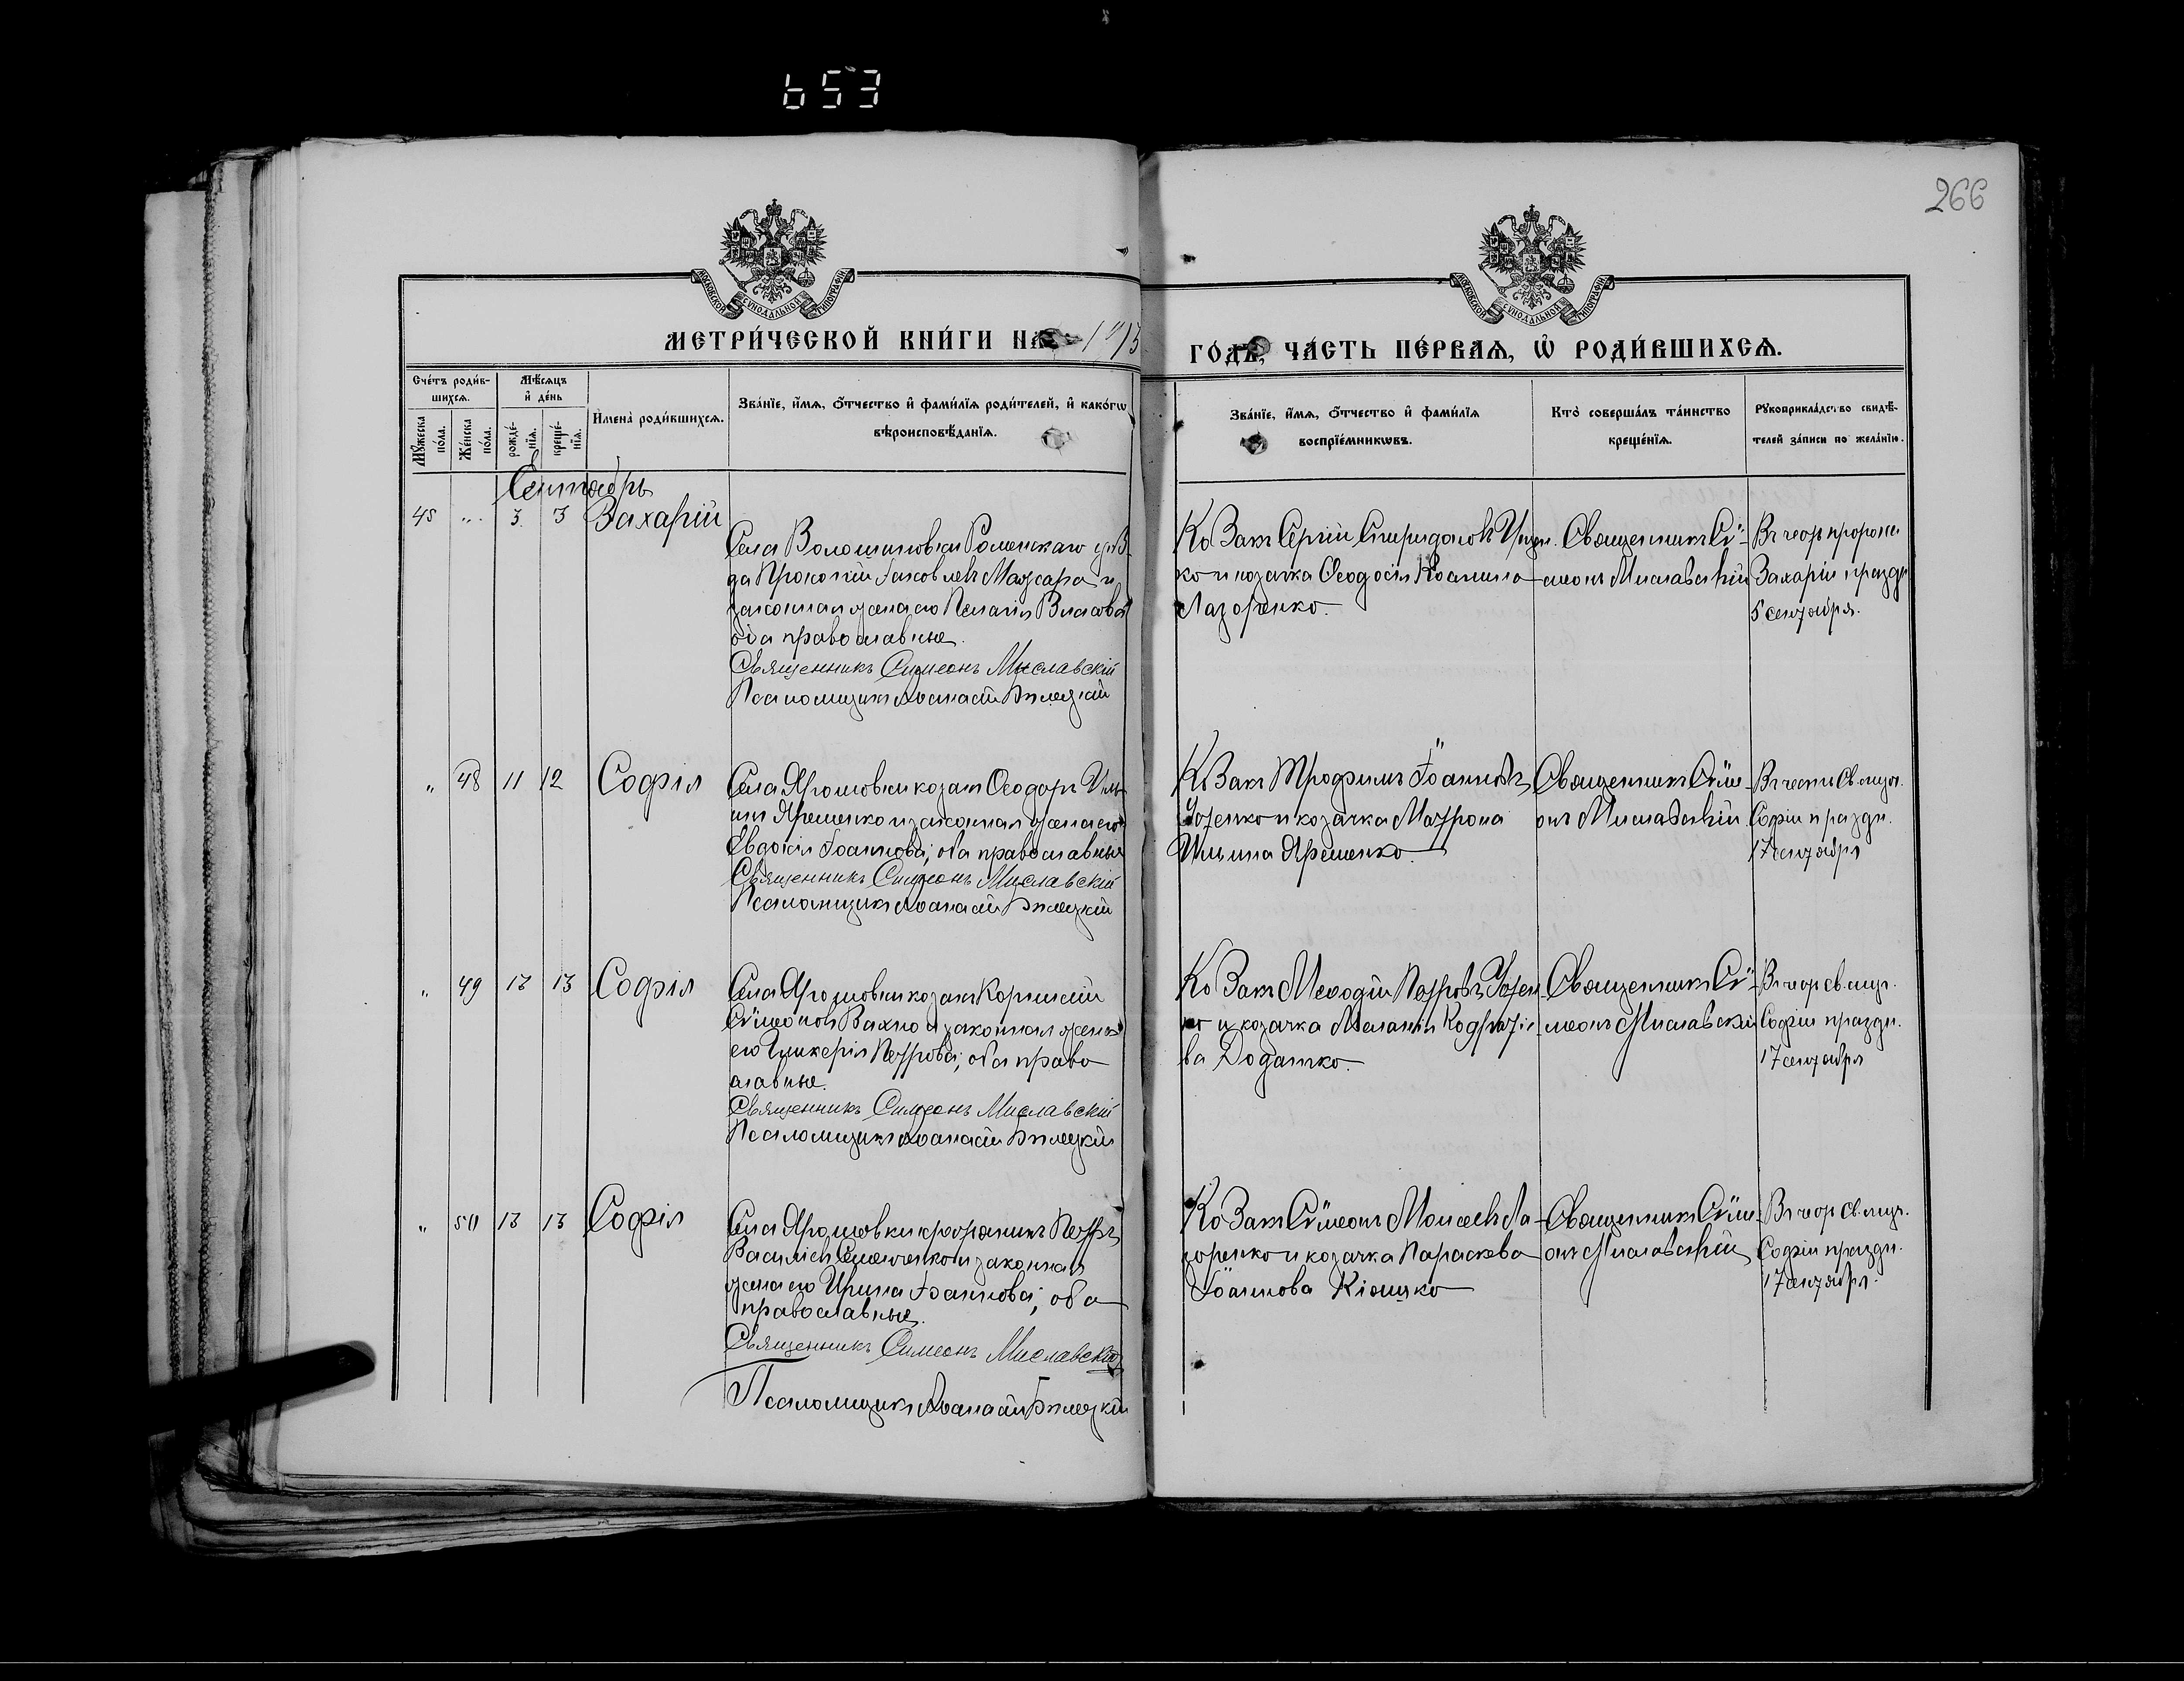 653
266
МОСКОВСКОЙ СУНОДАЛЬНОЙ ТИПОГРАФІИ
МОСКОВСКОЙ СУНОДАЛЬНОЙ ТИПОГРАФІИ
МЕТРИ́ЧЕСКОЙ КНИ́ГИ НА
ГО́ДЪ, ЧА́СТЬ ПЕ́РВАѦ, Ѡ҆ РОДИ́ВШИХСѦ.
Сче́тъ роди́в-
шихсѧ.
Мꙋ́жеска по́ла.
Же́нска по́ла.
Мѣ́сѧцъ
и҆ де́нь
рожде́-
нїѧ.
креще́-
нїѧ.
И҆мена̀ роди́вшихсѧ.
Зва́нїе, и҆́мѧ, ѻ҆́тчество и҆ фами́лїѧ роди́телей, и҆ како́гѡ
вѣроисповѣ́данїѧ.
Зва́нїе, и҆́мѧ, ѻ҆́тчество и҆ фами́лїѧ
воспрїе́мникѡвъ.
Кто̀ соверша́лъ та́инство
креще́нїѧ.
Рꙋкоприкла́дство свидѣ́-
телей за́писи по жела́нїю.
Сентябрь
45 " 3 3 Захарій
Села Волошиновки Роменскаго уѣз-
да Прокопій Іаковлевъ Мажара и
законная жена его Пелагія Власова
оба православные.
Священникъ Симеонъ Миславскій
Псаломщикъ Аѳанасій Билецкій
Козакъ Сергій Спиридоновъ
ко и козачка Ѳеодосія
Лазоренко.
Священникъ Сѵ-
меонъ Миславскій
Въ чес. пророка
Захаріи праздн.
5 сентября.
" 48 11 12 Софія
Села Ярошовки козакъ Ѳеодоръ Иль-
инъ Яременко и законная жена его
Евдокія Іоаннова; оба православные
Священникъ Симеонъ Миславскій
Псаломщикъ Аѳанасій Билецкій
Козакъ Трофимъ Іоанновъ
и козачка Матрона
Ильина Яременко.
Священникъ Сѵме-
онъ Миславскій.
Въ честь Св. муч.
Софіи праздн.
17 сентября
" 49 12 13 Софія
Села Ярошовки козакъ Корнилій
Сѵмеоновъ Вахно и законная жена
его Гликерія Петрова; оба право
славные.
Священникъ Симеонъ Миславскій
Псаломщикъ Аѳанасій Билецкій
Козакъ Меѳодій Петровъ
ко и козачка Меланія Кодрато-
ва Додатко.
Священникъ Сѵ-
меонъ Миславскій
Въ чес. св. муч.
Софіи праздн.
17 сентября
" 50 13 13 Софія
Села Ярошовки Петръ
Василіевъ Семенченко и законная
жена его Ирина Іоаннова; оба
православные.
Священникъ Симеонъ Миславскій
Псаломщикъ Аѳанасій Билецкій
Козакъ Сѵмеонъ Моисеевъ Ла-
зоренко и козачка Параскева
Іоаннова Кіяшко
Священникъ Сѵме-
онъ Миславскій
Въ чес. св. муч.
Софіи праздн.
17 сентября.